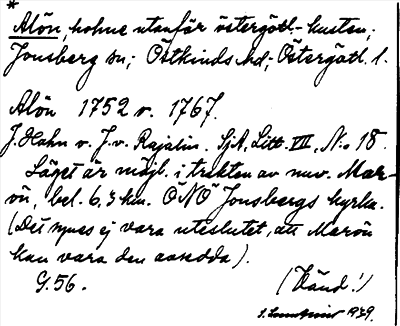 *
Alön, holme utanför östergötl.-kusten;
Jonsberg sn; Östkinds hd; Östergötl. l.
Alön 1752 o. 1767.
J. Hahn o. J. v. Rajalin. SjA, Litt. VII, N:o 18.
Läget är möjl. i trakten av nuv. Mar-
ön, bel. 6,3 km. ONO Jonsbergs kyrka.
(Det synes ej vara uteslutet, att Marön
kan vara den avsedda).
G. 56. (Vänd!)
1939.